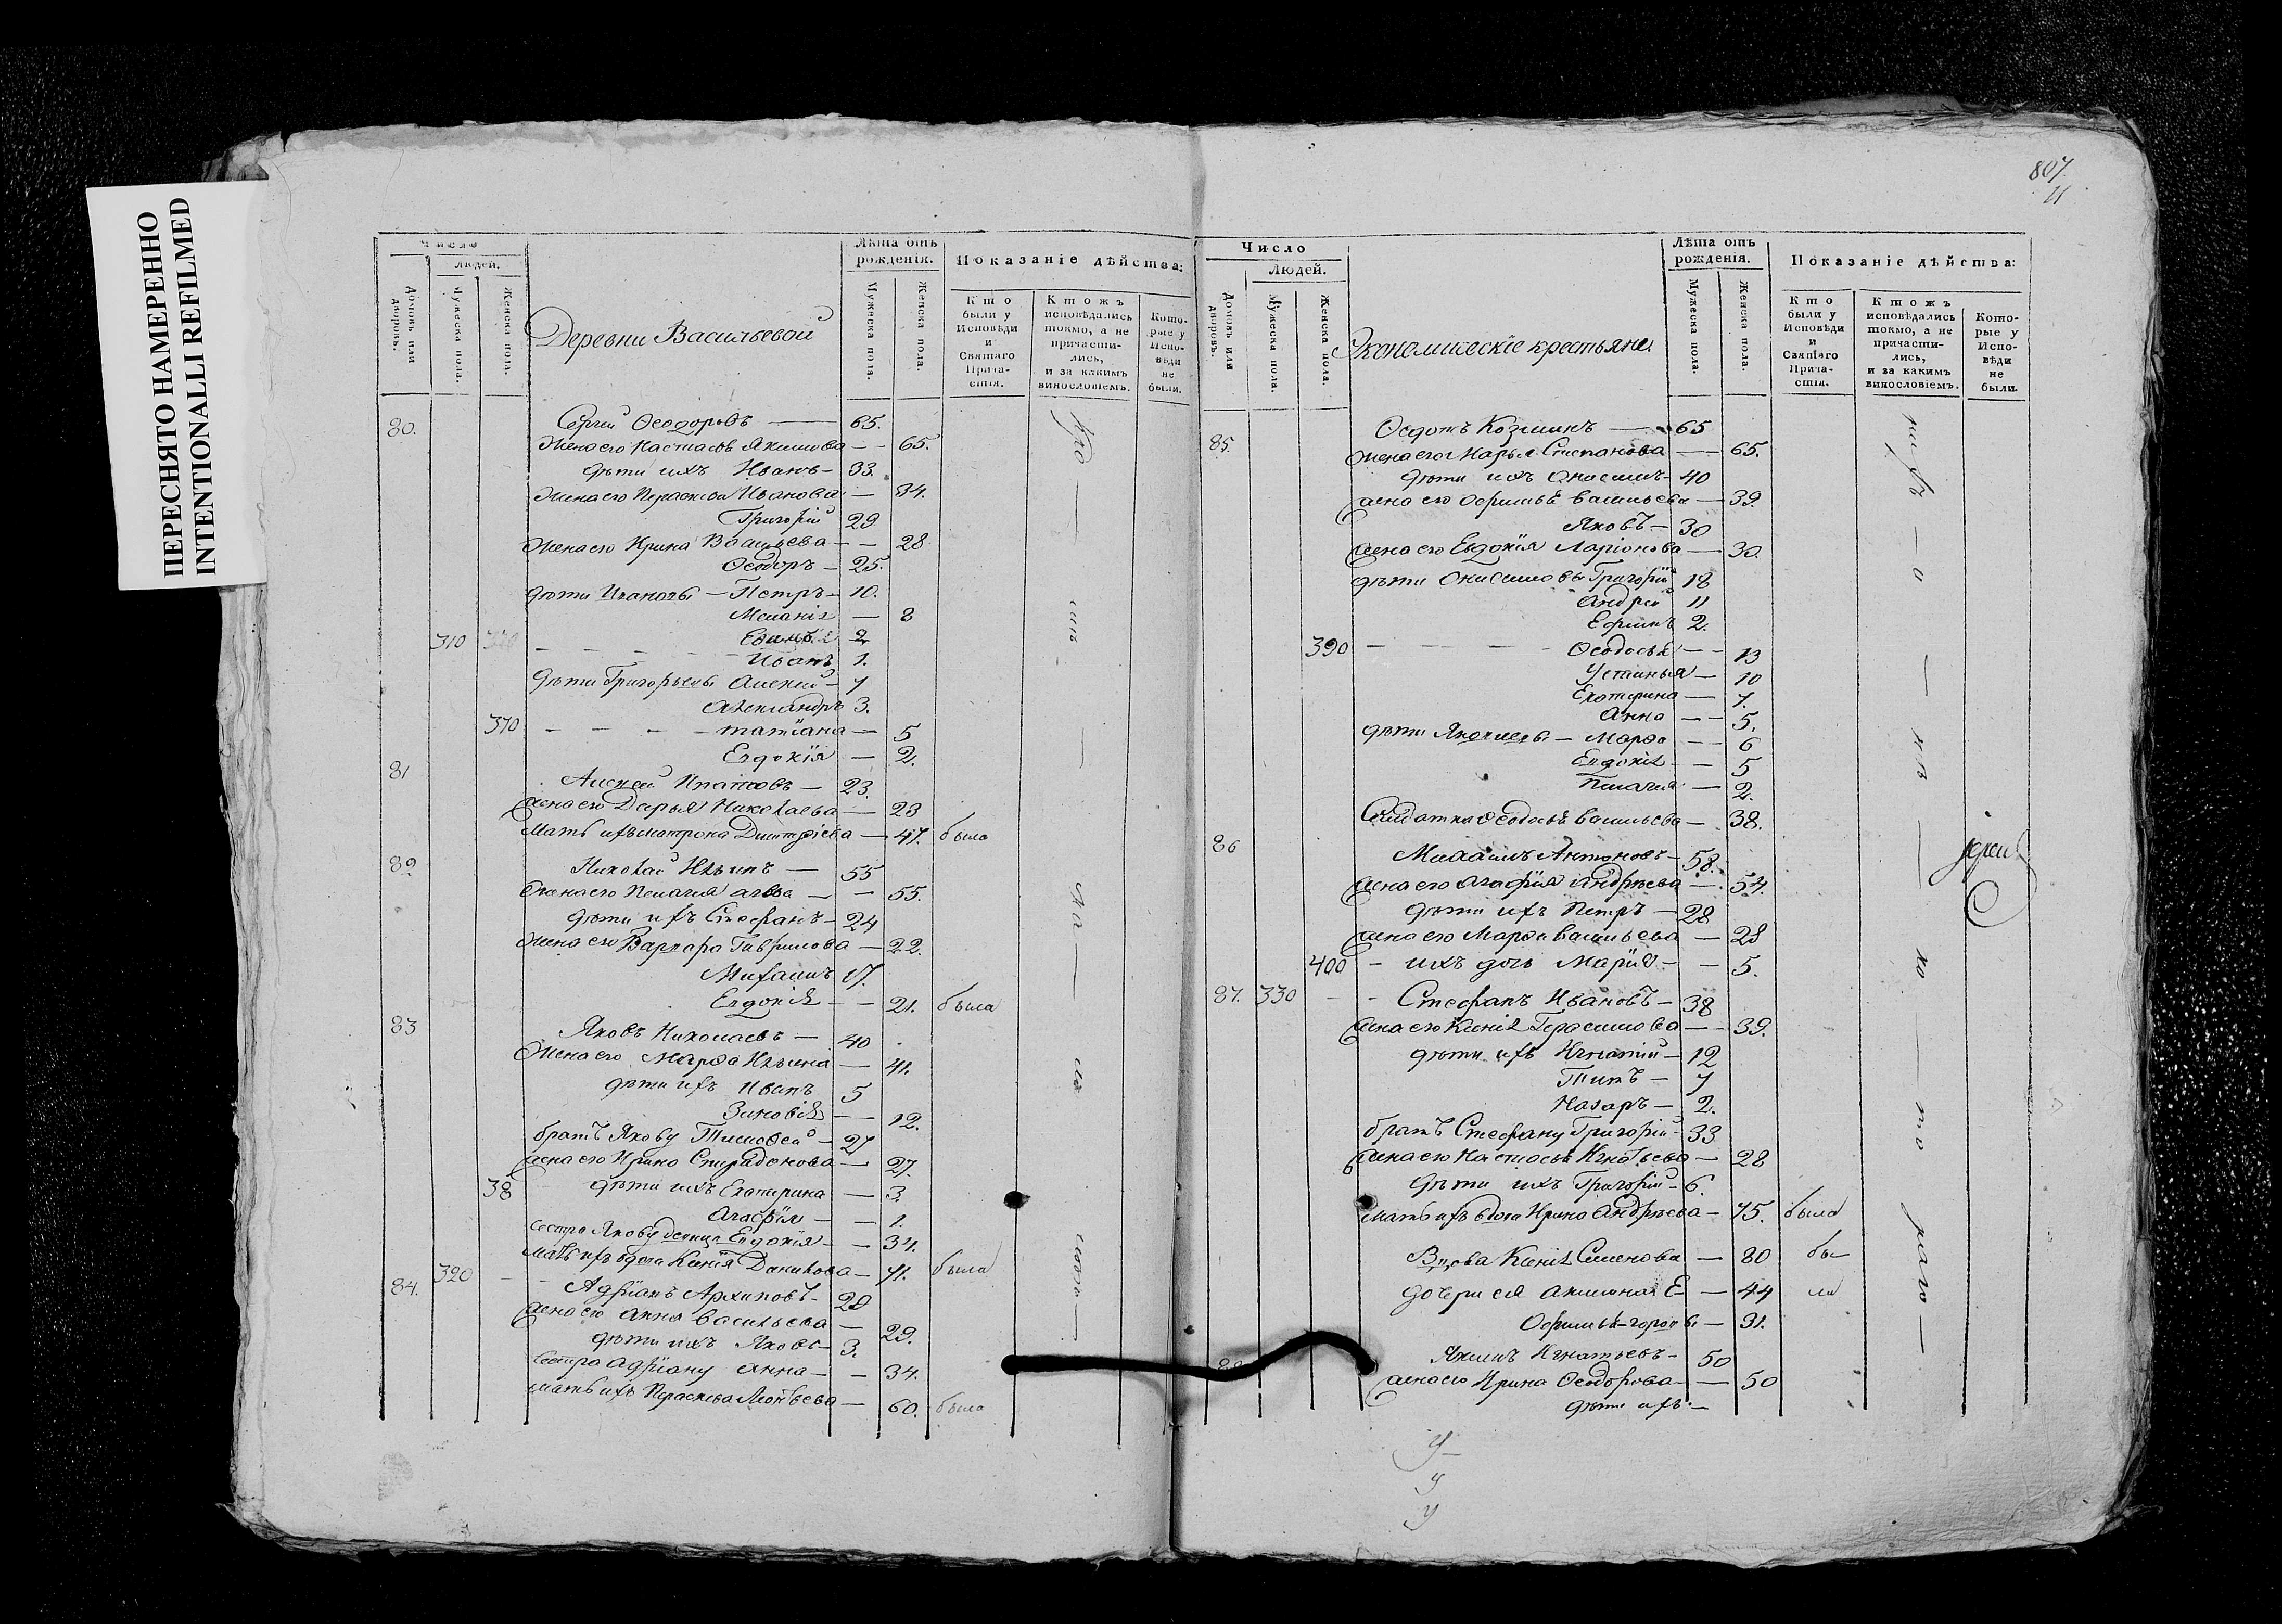 ПЕРЕСНЯТО НАМЕРЕННО
INTENTIONALLI REFILMED
807
Число
Людей.
Домовъ или дворовъ.
Мужеска пола.
Женска пола.
Деревни Васильевой
Лѣта отъ рожденія.
Мужеска пола.
Женска пола.
Показаніе дѣйства:
Кто были у Исповѣди и Святаго Прича-стія.
Ктожъ исповѣдались токмо, а не причасти-лись, и за какимъ винословіемъ.
Кото-рые у Испо-вѣди не были.
80. Сергей Ѳеодоровъ — 65.
Жена его Настасья Якимова — 65.
дѣти ихъ Иванъ — 33.
Жена его Праскева Иванова — 34.
Григорій 29
Жена его Ирина Васильева — 28
Ѳеодоръ — 25.
дѣти Ивановы — Петръ — 10.
Меланія — 8
310 2
Иванъ 1.
дѣти Григорьевы Алексей — 7
Александръ 3.
370 — Татіана — 5
Евдокія — 2.
81 Алексей Ипатовъ — 23.
Жена его Дарья Николаева — 23
Мать ихъ Матрона Дмитріева — 47. была
82 Николай Ильинъ — 55
Жена его Пелагия — 55.
дѣти ихъ Стефанъ — 24
Жена его Варвара Гаврилова — 22.
Михаилъ 17.
Евдокія — 21. была
83 Яковъ Николаевъ — 40
Жена его Марѳа Ильина — 41.
дѣти ихъ Иванъ 5
Зиновія — 12.
братъ Якову Тимоѳей — 27
Жена его Ирина Спиридонова — 27
38 дѣти ихъ Екатерина — 3
Агафія — 1.
сестра Якову девица Евдокія — 34.
Мать ихъ вдова Ксенія Данилова — 71. была
84. 320 Адріанъ Архиповъ — 29
Жена его Анна Васильева — 29.
дѣти ихъ Яковъ — 3.
Сестра Адріану Анна — 34.
Мать ихъ Праскева Леонтьева — 60. была
Число
Людей.
Домовъ или дворовъ.
Мужеска пола.
Женска пола.
Экономическіе крестьяне.
Лѣта отъ рожденія.
Мужеска пола.
Женска пола.
Показаніе дѣйства:
Кто были у Исповѣди и Святаго Прича-стія.
Ктожъ исповѣдались токмо, а не причасти-лись, и за какимъ винословіемъ.
Кото-рые у Испо-вѣди не были.
85. Ѳедотъ Козминъ — 65
Жена его Марья Степанова — 65.
дѣти ихъ Онисимъ — 40
Жена его Ефимья Васильева — 39.
Яковъ — 30
Жена его Евдокія Ларіонова — 30.
дѣти Онисимовы Григорій 18
Андрей 11
Ефимъ 2.
390 — Ѳеодосья — 13
Устинья — 10
Екатерина — 7.
Анна — 5.
дѣти Яковлевы — Марѳа — 6
Евдокія — 5
Пелагия — 2.
Солдатка Ѳеодосья Васильева — 38.
86 Михаилъ Антоновъ — 58.
Жена его Агафія Андрѣева — 54.
дѣти ихъ Петръ — 28
Жена его Марѳа Васильева — 28
400 — ихъ дочь Марія — 5.
87. 330 — Стефанъ Ивановъ — 38
Жена его Ксенія Герасимова — 39.
дѣти ихъ Игнатий — 12
Титъ — 7
Назаръ — 2.
братъ Стефану Григорій — 33
Жена его Настасья Игнатьева — 28
дѣти ихъ Григорій — 6.
Мать ихъ вдова Ирина Андрѣева — 75. была
Вдова Ксенія Семенова — 80 бы-
дочери ея Акилина Е — 44 ли
Ефимья — 31.
Якимъ Игнатьевъ — 50
Жена его Ирина Ѳеодорова — 50
дѣти ихъ —